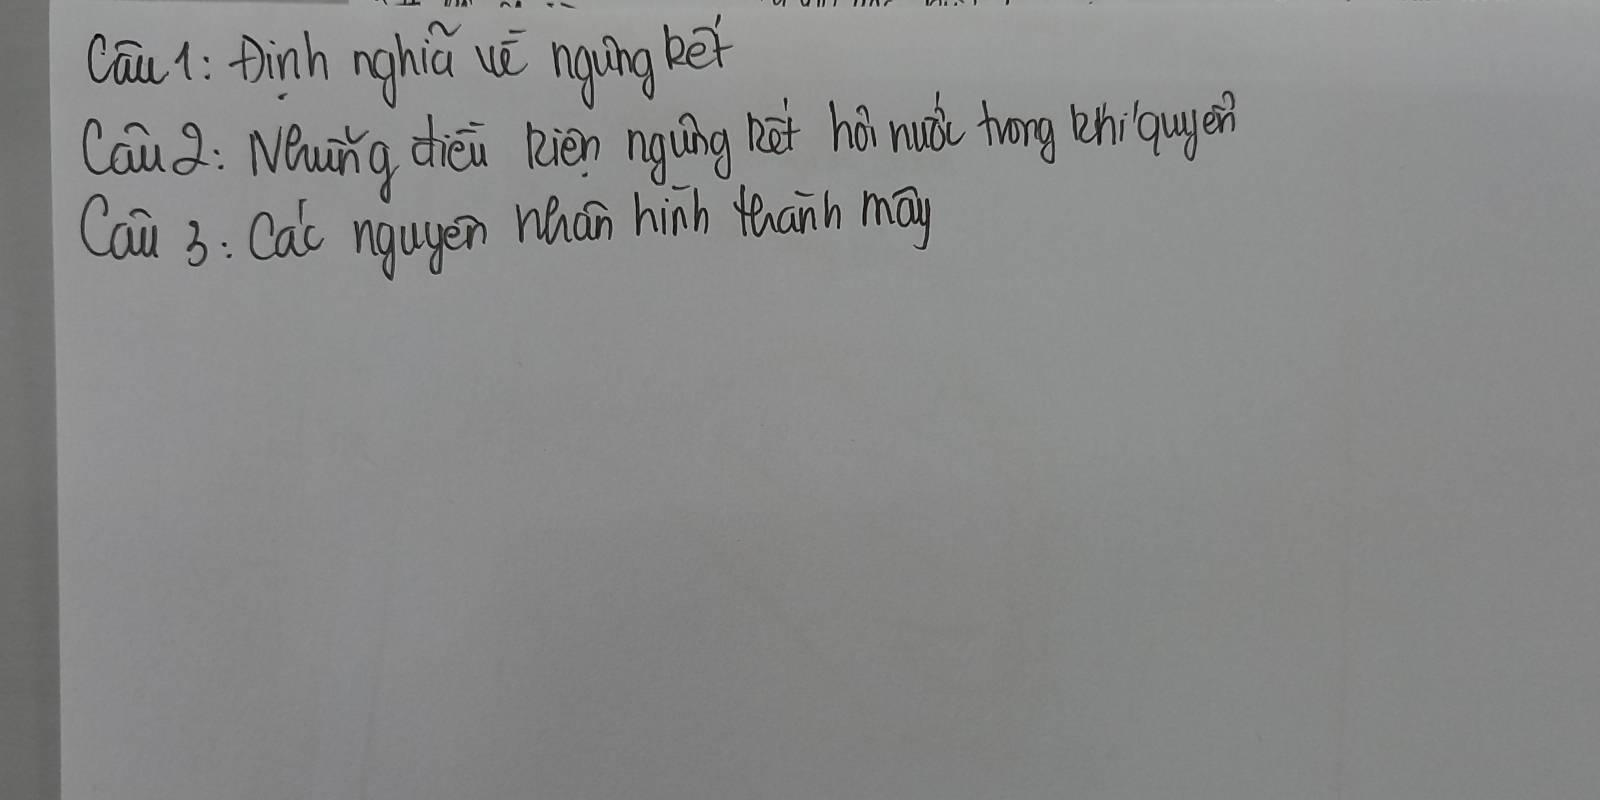 Câu 1: Định nghĩa về ngưng kết
Câu 2: Những điều kiện ngưng kết hơi nước trong khí quyển
Câu 3: Các nguyên nhân hình thành mây